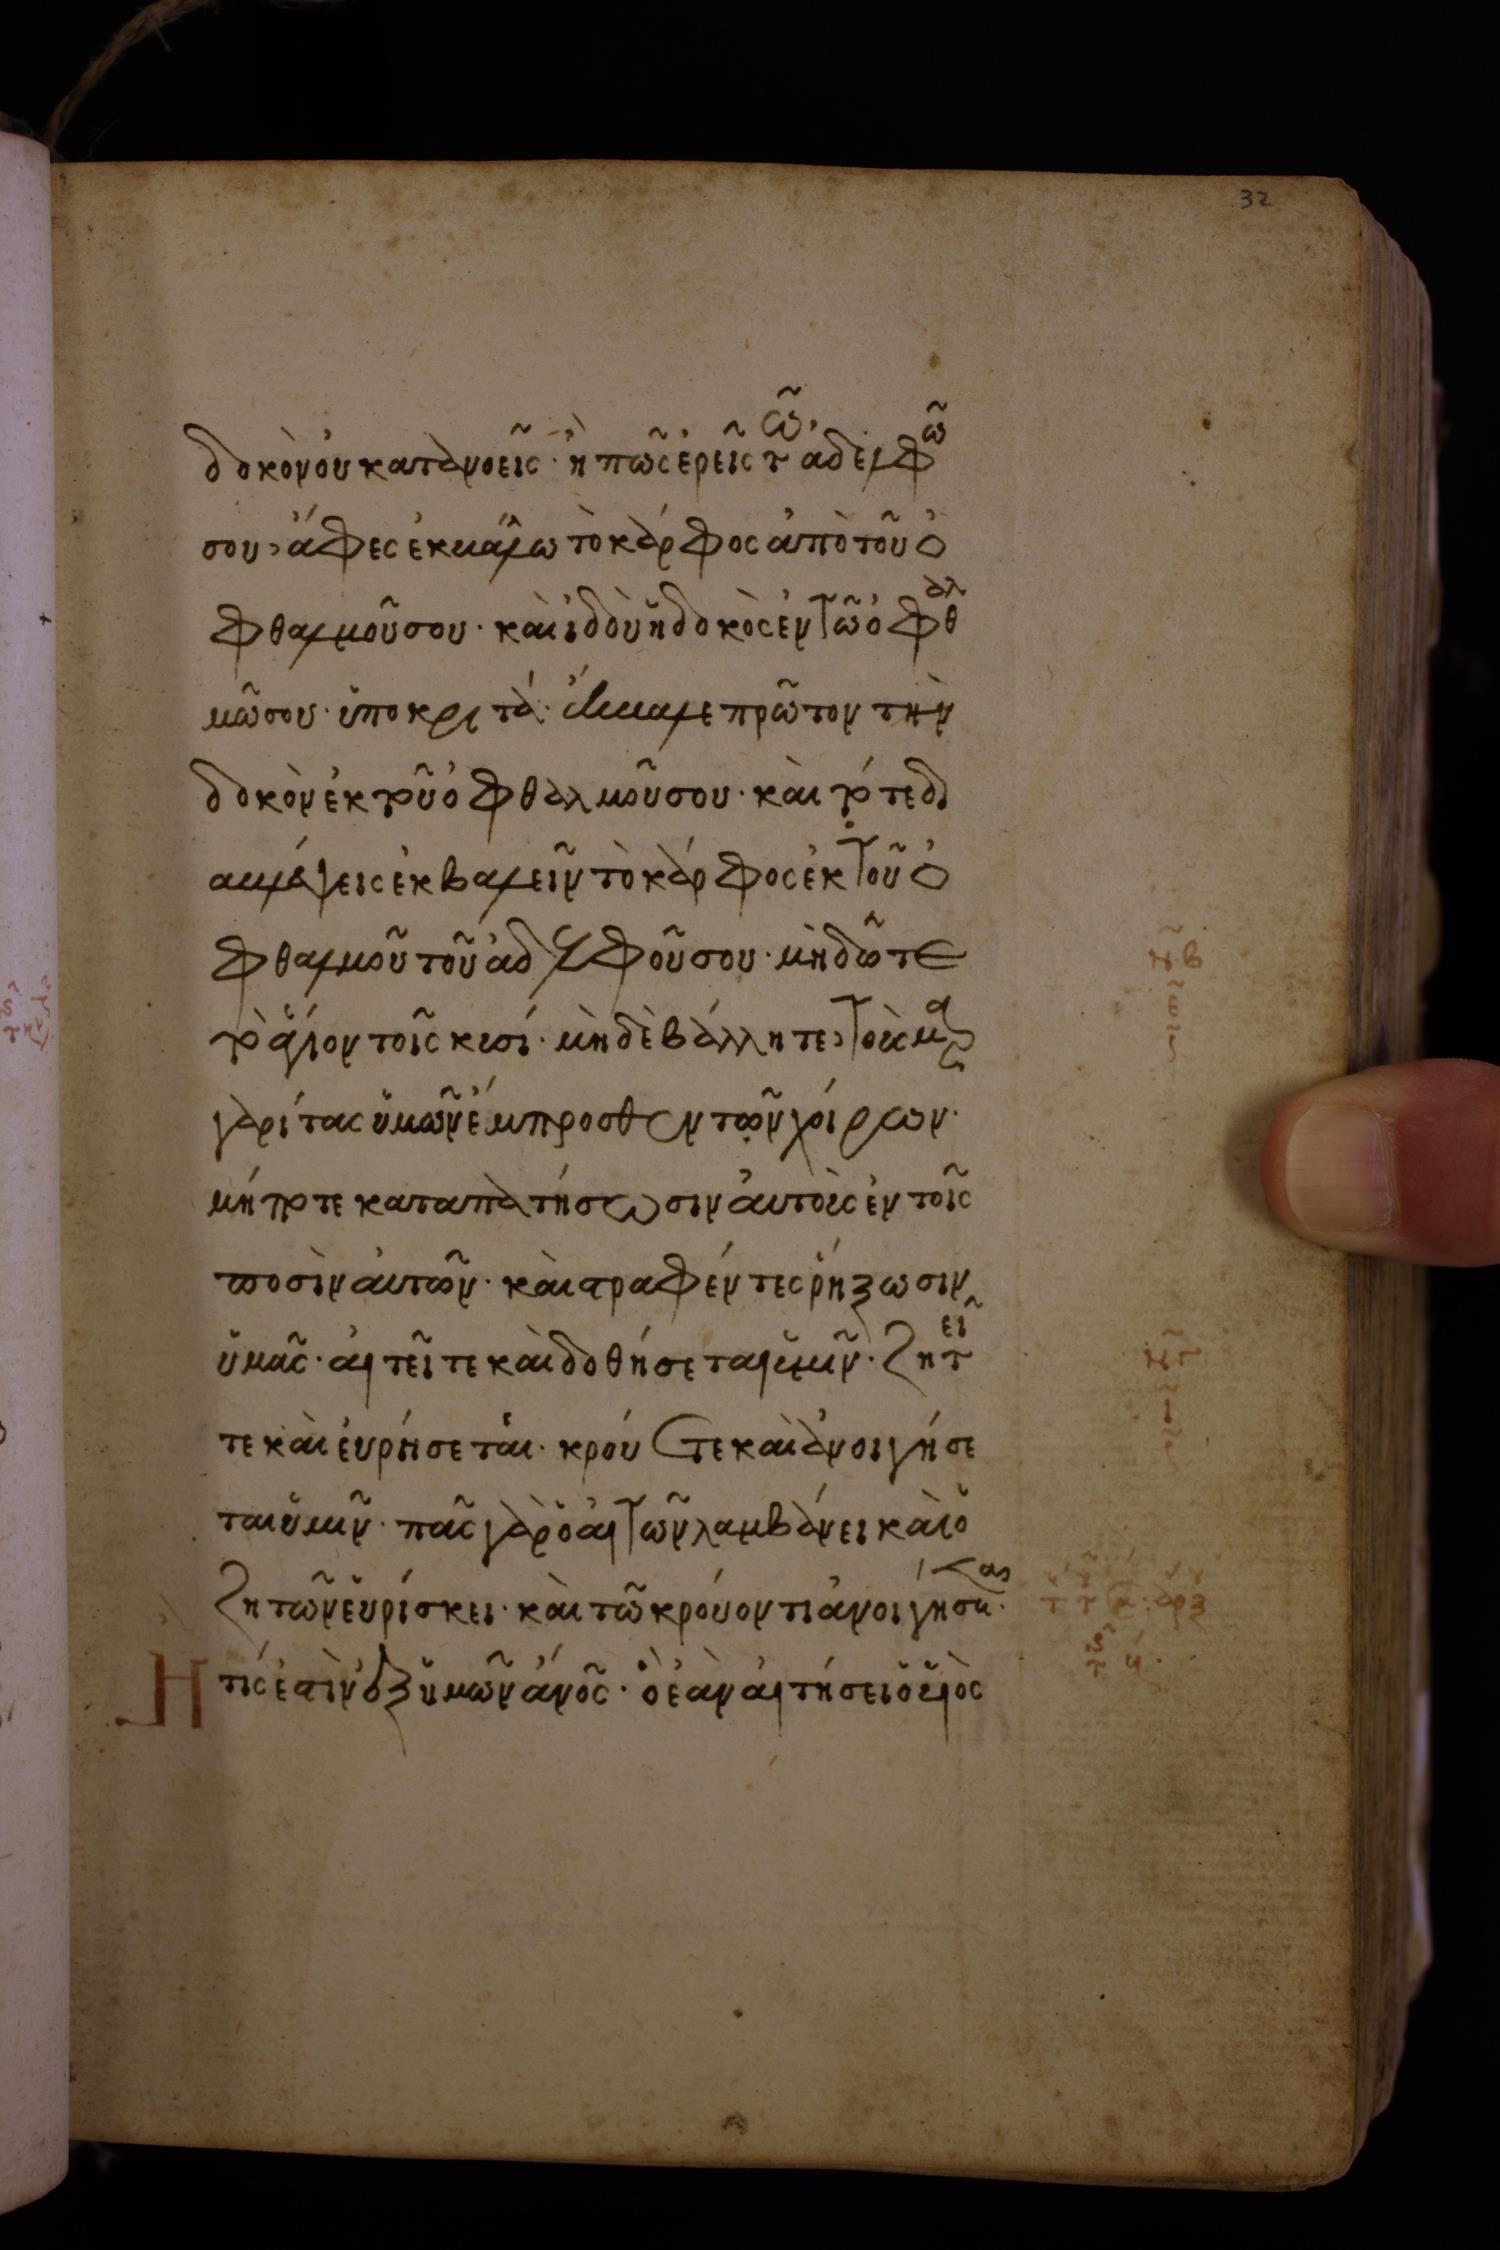 32
δοκὸν οὐ κατανοεῖς· ἢ πῶς ἐρεῖς τῶ ἀδελφῶ
σου, ἄφες ἐκβάλω τὸ κάρφος ἀπὸ τοῦ ὀ
φθαλμοῦ σου· καὶ ἰδοὺ ἡ δοκὸς ἐν τῶ ὀφθαλ
μῶ σου· ὑποκριτά· ἔκβαλε πρῶτον τὴν
δοκὸν ἐκ τοῦ ὀφθαλμοῦ σου· καὶ τότε δι
αβλέψεις ἐκβαλεῖν τὸ κάρφος ἐκ τοῦ ὀ
φθαλμοῦ τοῦ ἀδελφοῦ σου· μὴ δῶτε
τὸ ἅγιον τοῖς κυσί· μὴ δὲ βάλλητε τοὺς μαρ
γαρίτας ὑμῶν ἔμπροσθεν τῶν χοίρων·
μήποτε καταπατήσωσιν αὐτοὺς ἐν τοῖς
ποσὶν αὐτῶν· καὶ στραφέντες ῥήξωσιν
ὑμᾶς· αἰτεῖτε καὶ δοθήσεται ὑμῖν· ζητεῖ
τε καὶ εὑρήσεται· κρούετε καὶ ἀνοιγήσε
ται ὑμῖν· πᾶς γὰρ ὁ αἰτῶν λαμβάνει καὶ ὁ
ζητῶν εὑρίσκει· καὶ τῶ κρούοντι ἀνοιγήσεται·
Ἢ τίς ἐστὶν ἐξ ὑμῶν ἄνος· ὃ ἐὰν αἰτήσει ὁ υἱὸς